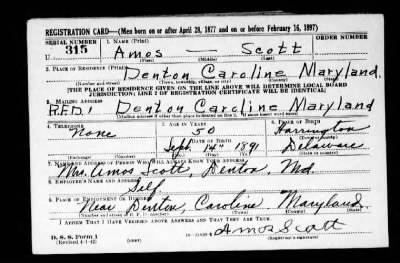 REGISTRATION CARD—(Men born on or after April 28, 1877 and on or before February 16, 1897)
SERIAL NUMBER
1. NAME (Print)
ORDER NUMBER
315
Amos — Scott
(First) (Middle) (Last)
2. PLACE OF RESIDENCE (Print)
Denton Caroline Maryland.
(Number and street) (Town, township, village, or city) (County) (State)
[THE PLACE OF RESIDENCE GIVEN ON THE LINE ABOVE WILL DETERMINE LOCAL BOARD
JURISDICTION; LINE 2 OF REGISTRATION CERTIFICATE WILL BE IDENTICAL]
3. MAILING ADDRESS
R.F.D. 1 Denton Caroline Maryland
[Mailing address if other than place indicated on line 2. If same insert word same]
4. TELEPHONE
5. AGE IN YEARS
6. PLACE OF BIRTH
None
50
Harrington
DATE OF BIRTH
Sept. 14th 1891
Delaware
(Exchange) (Number) (Mo.) (Day) (Yr.) (State or country)
7. NAME AND ADDRESS OF PERSON WHO WILL ALWAYS KNOW YOUR ADDRESS
Mrs. Amos Scott, Denton, Md.
8. EMPLOYER'S NAME AND ADDRESS
Self.
9. PLACE OF EMPLOYMENT OR BUSINESS
Near Denton, Caroline, Maryland.
(Number and street or R. F. D. number) (Town) (County) (State)
I AFFIRM THAT I HAVE VERIFIED ABOVE ANSWERS AND THAT THEY ARE TRUE.
D. S. S. Form 1
(Revised 4-1-42) (over)
Amos Scott
(Registrant's signature)